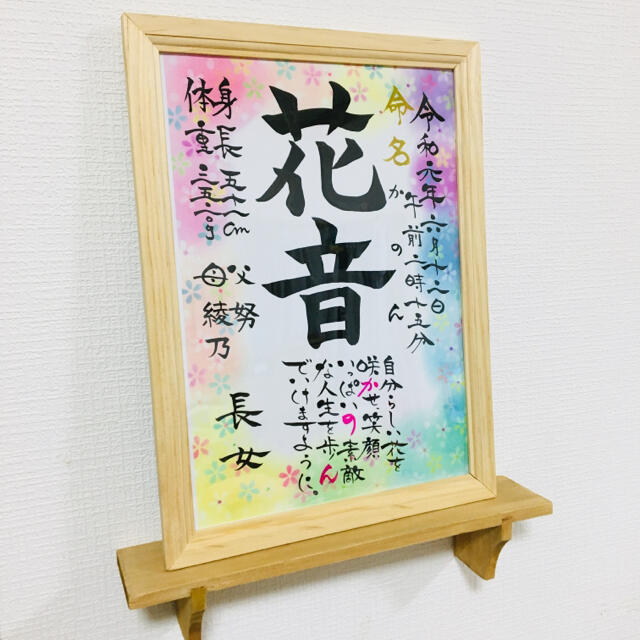 令和元年六月十六日
午前二時十五分
命名
かのん
花音
自分らしい花を
咲かせ笑顔
いっぱいの素敵
な人生を歩ん
でいけますように。
身長五十cm
体重三五〇g
父努
母綾乃
長女